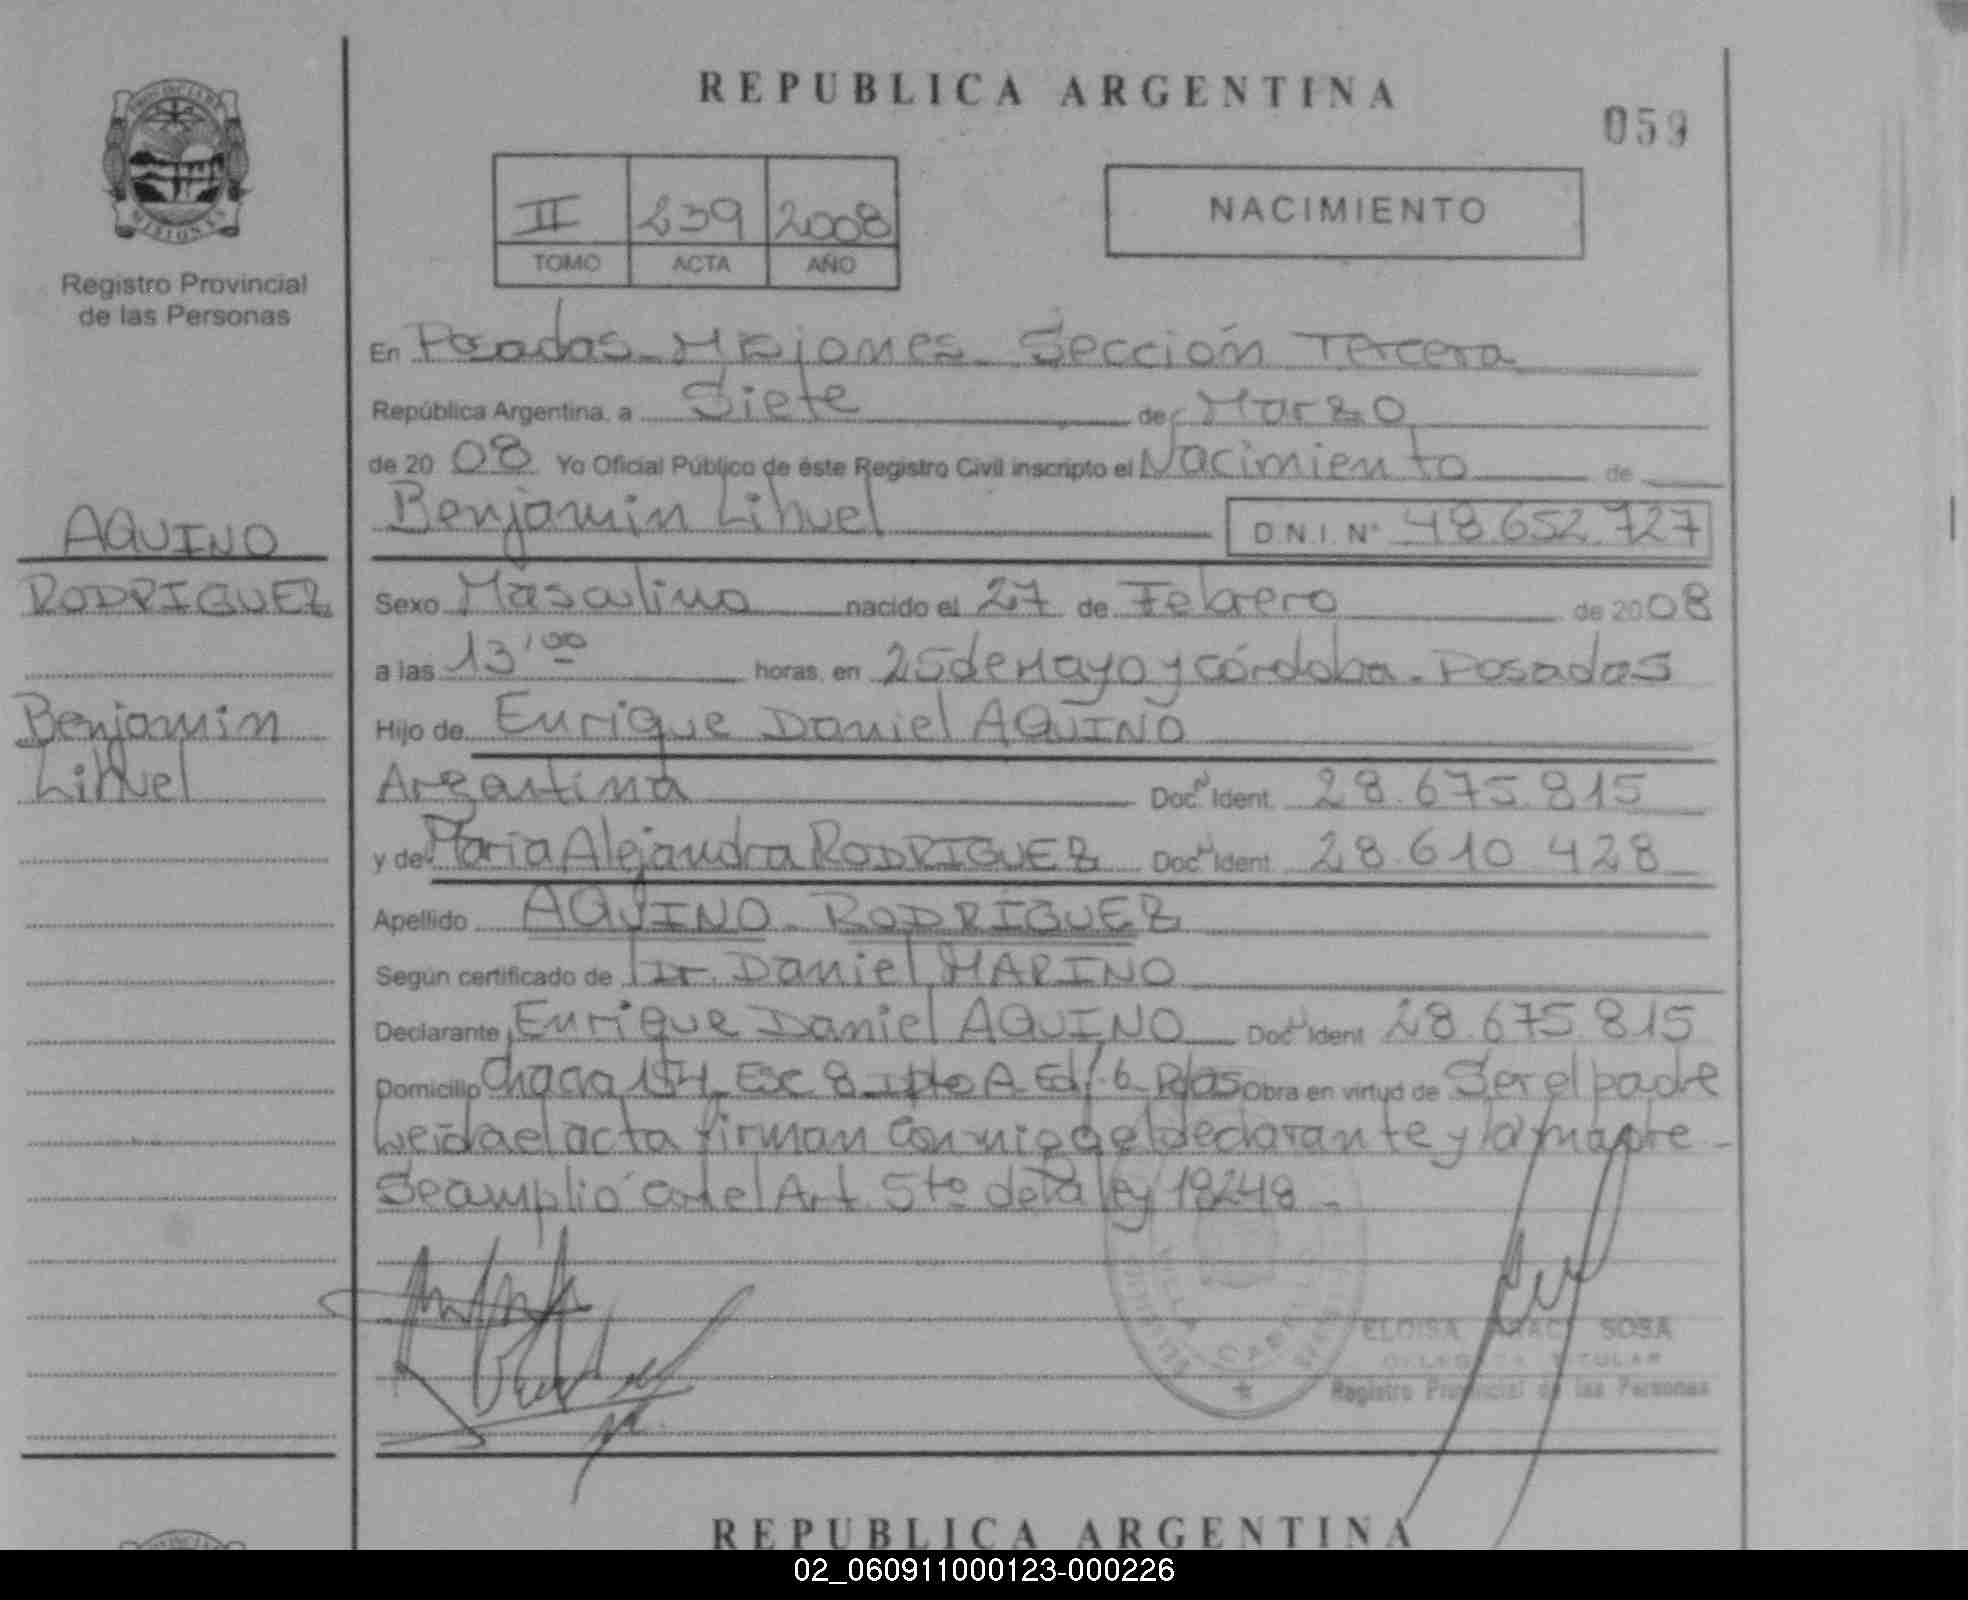 REPUBLICA ARGENTINA
059
PROVINCIA DE
MISIONES
Registro Provincial
de las Personas
II 239 2008
TOMO ACTA AÑO
NACIMIENTO
En Posadas - Misiones - Sección Tercera
República Argentina, a Siete de Marzo
de 2008 Yo Oficial Público de éste Registro Civil inscripto el Nacimiento de
Benjamin Lihuel D.N.I. Nº 48.652.727
AQUINO
RODRIGUEZ
Benjamin
Lihuel
Sexo Masculino nacido el 27 de Febrero de 2008
a las 13'00 horas, en 25 de Mayo y Córdoba - Posadas
Hijo de Enrique Daniel AQUINO
Argentina Doc. Ident. 28.675.815
y de Maria Alejandra RODRIGUEZ Doc. Ident. 28.610.428
Apellido AQUINO - RODRÍGUEZ
Según certificado de Dr. Daniel MARINO
Declarante Enrique Daniel AQUINO Doc. Ident. 28.675.815
Domicilio Chacra 154 Esc 8 Dpto A Edf. 6 Pdas Obra en virtud de Ser el padre
Leida el acta firman conmigo el declarante y la madre -
Se amplió con el Art. 5to de la Ley 18248 -
VILLA CABELLO
ELOISA SOSA
DELEGADA TITULAR
Registro Provincial de las Personas
REPUBLICA ARGENTINA
02_060911000123-000226